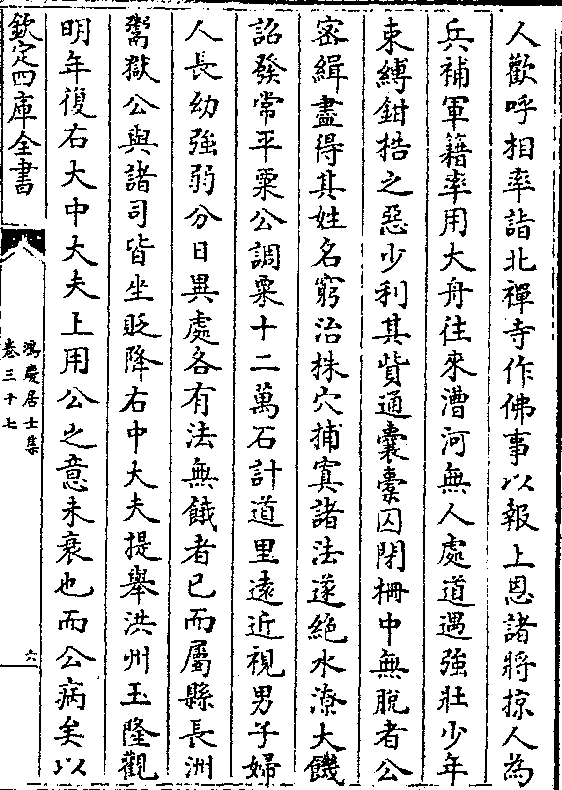 人歡呼相率詣北禪寺作佛事以報上恩諸將掠人為
兵補軍籍率用大舟往來漕河無人處道遇強壯少年
束縛鉗梏之惡少利其貲通囊橐囚閉柵中無脫者公
密緝盡得其姓名窮治株穴捕寘諸法遂絶水潦大饑
詔發常平粟公調粟十二萬石計道里遠近視男子婦
人長幼強弱分日異處各有法無餓者已而屬縣長洲
鬻獄公與諸司皆坐貶降右中大夫提舉洪州玉隆觀
明年復右大中大夫上用公之意未衰也而公病矣以
欽定四庫全書
鴻慶居士集
卷三十七
六